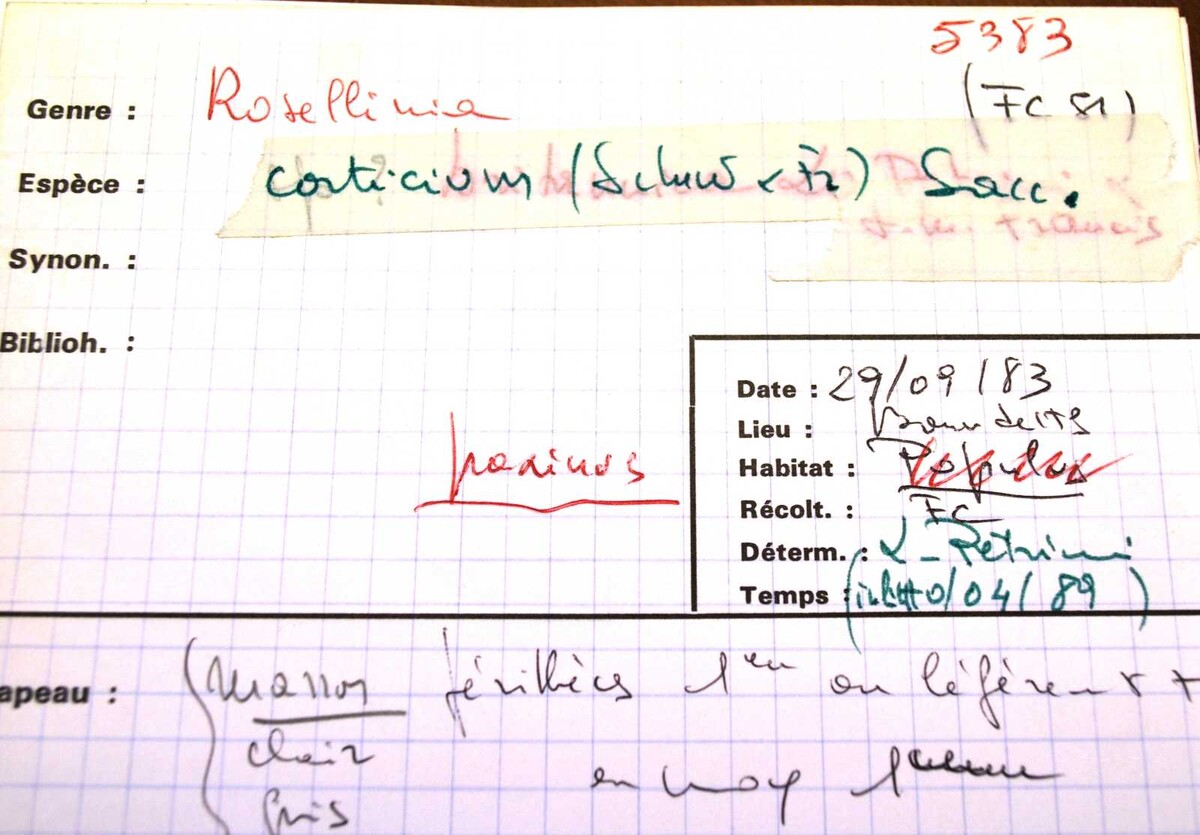 5383
Genre : Rosellinia (FC 81)
Espèce : corticium (Schw & Fr) Sacc.
J.M. Francis
Synon. :
Biblioh. :
Date : 29/09/83
Lieu :
Habitat : Populus
fraxinus
Récolt. : FC
Déterm. : L. Petrini
Temps : 10/04/89)
apeau : marron périthèces 1 en ou légèrement +
clair en moy
gris